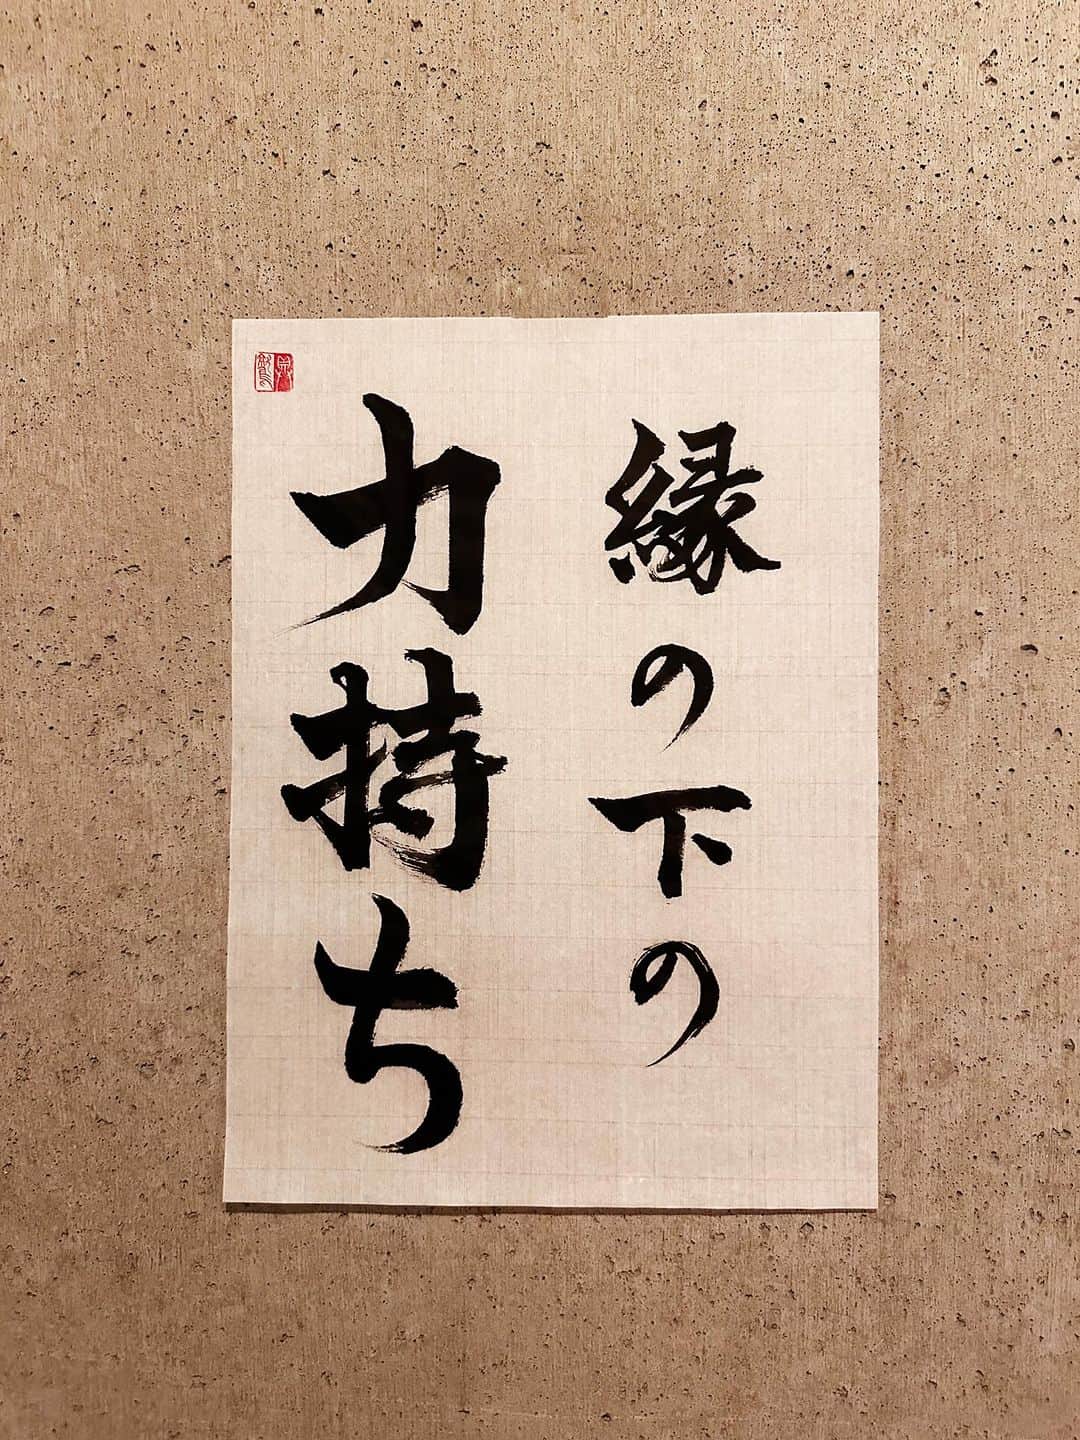 縁の下の
力持ち